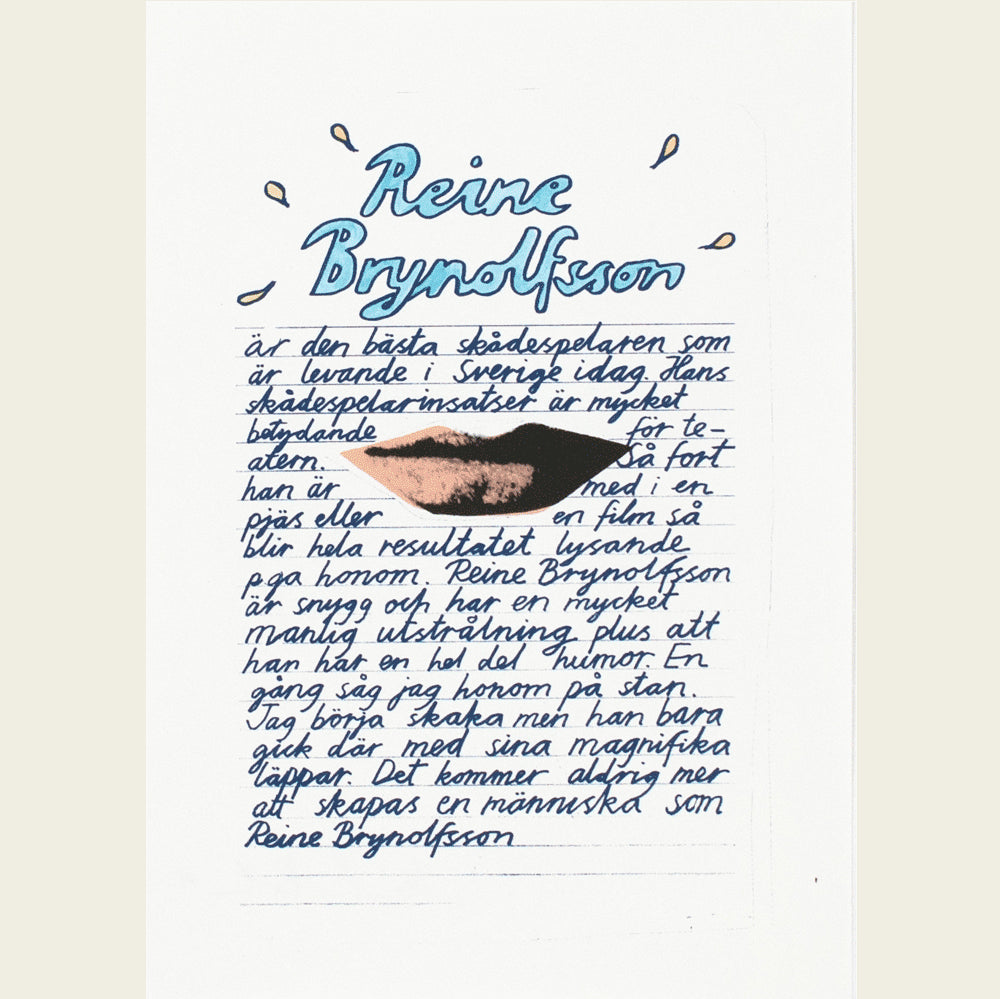 Reine
Brynolfsson
är den bästa skådespelaren som
är levande i Sverige idag. Hans
skådespelarinsatser är mycket
betydande för te-
atern. Så fort
han är med i en
pjäs eller en film så
blir hela resultatet lysande
p ga honom. Reine Brynolfsson
är snygg och har en mycket
manlig utstrålning plus att
han har en hel del humor. En
gång såg jag honom på stan.
Jag börja skaka men han bara
gick där med sina magnifika
läppar. Det kommer aldrig mer
att skapas en människa som
Reine Brynolfsson